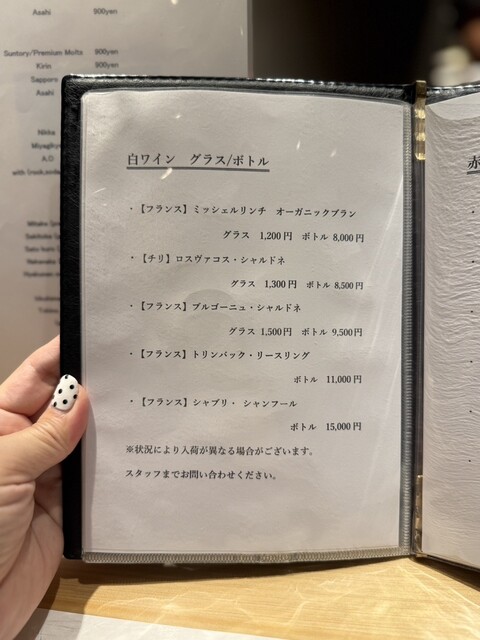 Asahi 900yen
Suntory/Premium Molts 900yen
Kirin 900yen
Sapporo
Asahi
Nikka
A.O
白ワイン グラス/ボトル
・【フランス】ミッシェルリンチ オーガニックブラン
グラス 1,200円 ボトル 8,000円
・【チリ】ロスヴァコス・シャルドネ
グラス 1,300円 ボトル 8,500円
・【フランス】ブルゴーニュ・シャルドネ
グラス 1,500円 ボトル 9,500円
・【フランス】トリンバック・リースリング
ボトル 11,000円
・【フランス】シャブリ・ シャンフール
ボトル 15,000円
※状況により入荷が異なる場合がございます。
スタッフまでお問い合わせください。